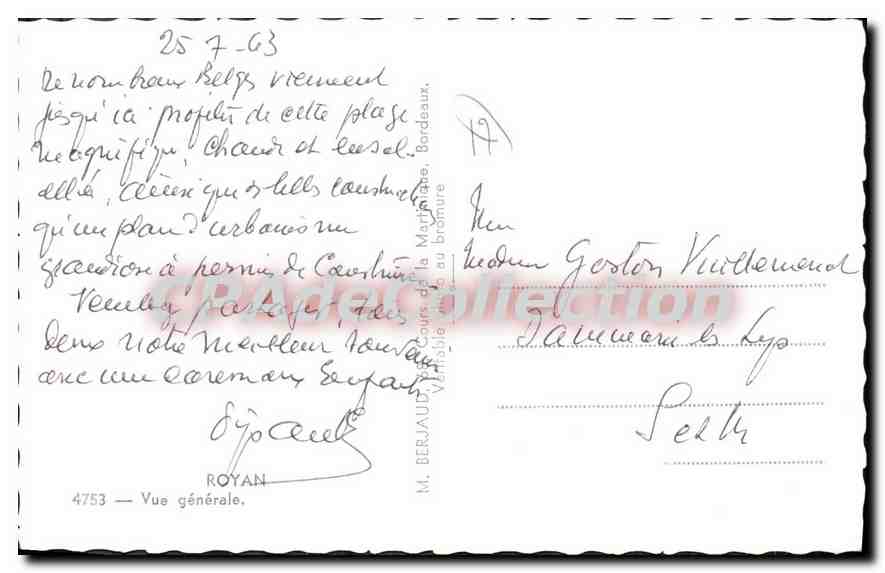 25-7-63
De nombreux Belges viennent
jusqu'ici profiter de cette plage
magnifique, chaude et ensol-
eillée, ainsi que des belles constructions
qu'un plan d'urbanisme
grandiose a permis de construire
Veuillez partager, tous
deux notre meilleur souvenir
avec un
ROYAN
4753 — Vue générale.
M. BERJAUD, Cours de la Martinique, Bordeaux.
Véritable photo au bromure
17
Mr
Madame Gaston Vuillemenot
Dammarie les Lys
S et M
CPAdeCollection